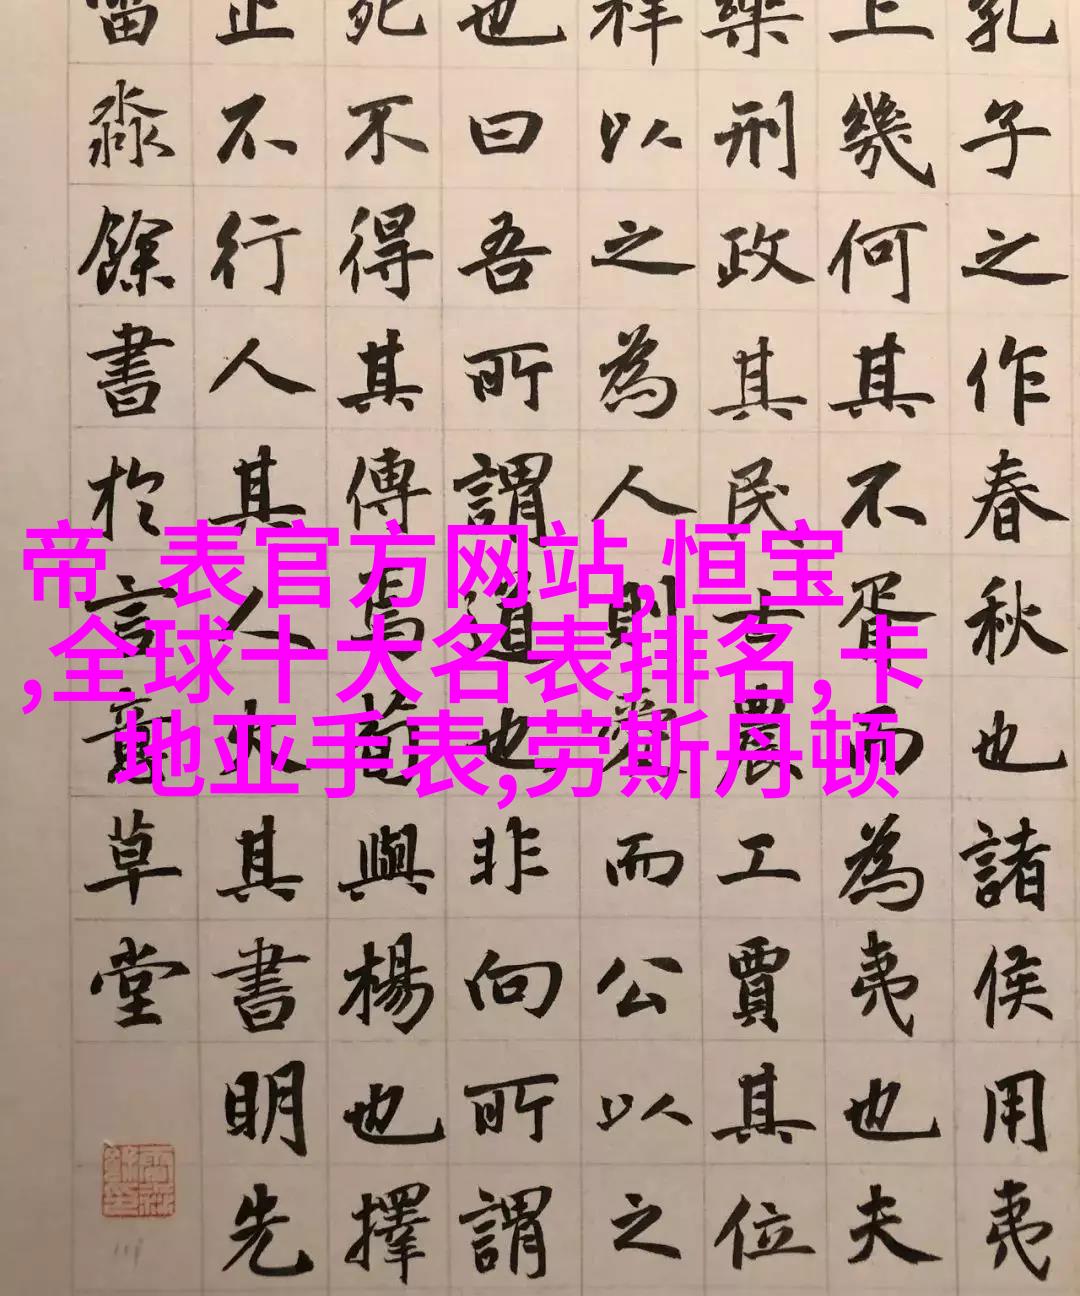 孔子之作春秋也諸侯用夷
上幾何其不胥而為夷也夫
樂刑政其民士農工賈其位
祥以之為人則愛而公以之
也曰吾所謂道也非向所謂
死不得其傳焉荀與楊也擇
止不行人其人火其書明先
淼餘書於言章草堂
帝 表官方网站,恒宝
,全球十大名表排名,卡
地亚手表,劳斯丹顿